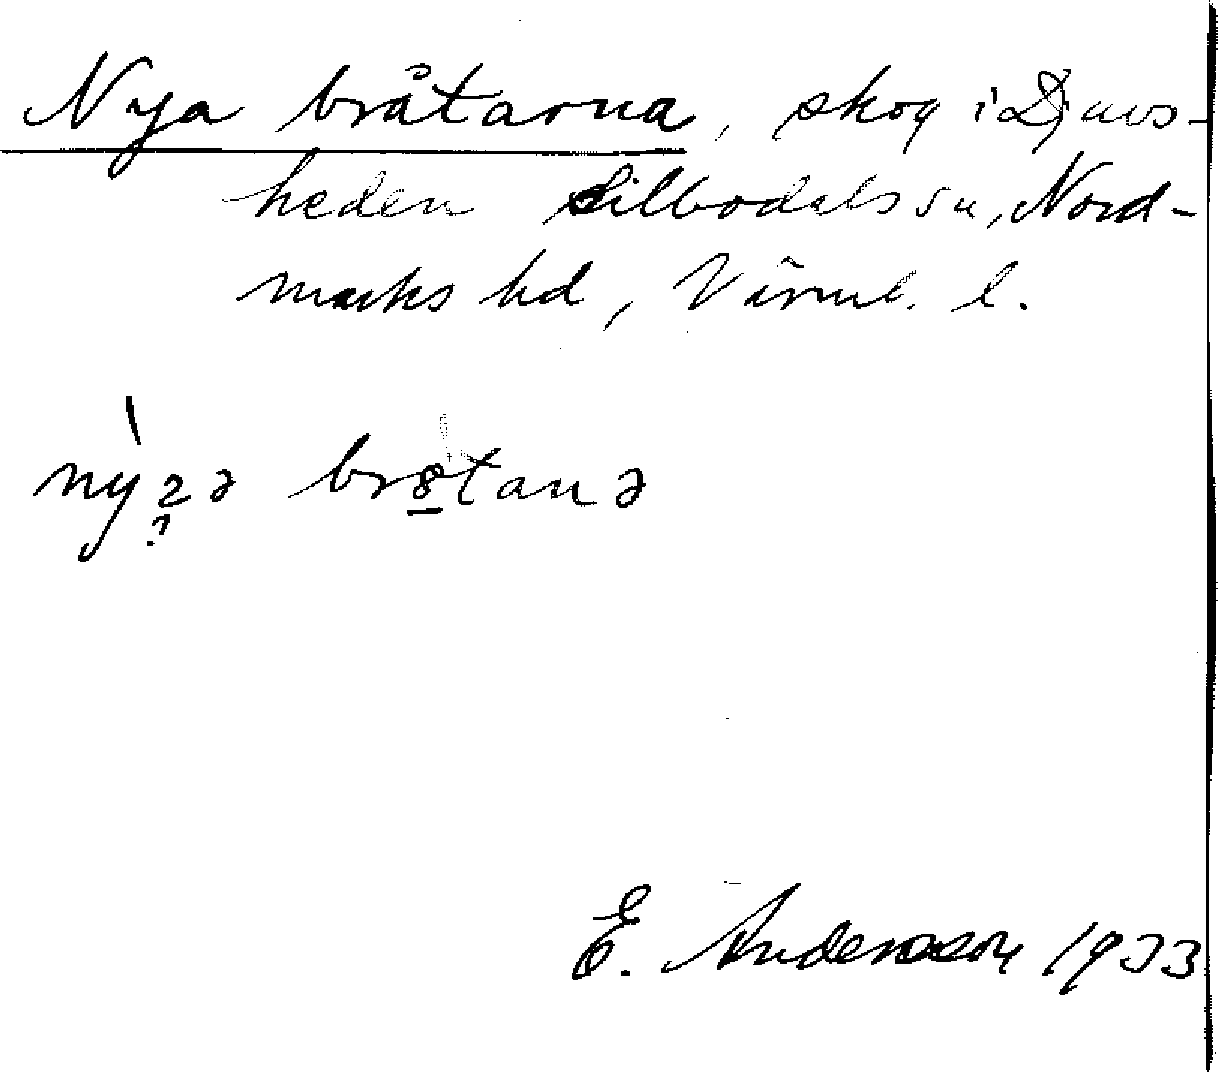 Nya bråtarna, skog i Djuvs-
heden Silbodals sn, Nord-
marks hd, Värml. l.
brøtanə
E. Andersson 1933